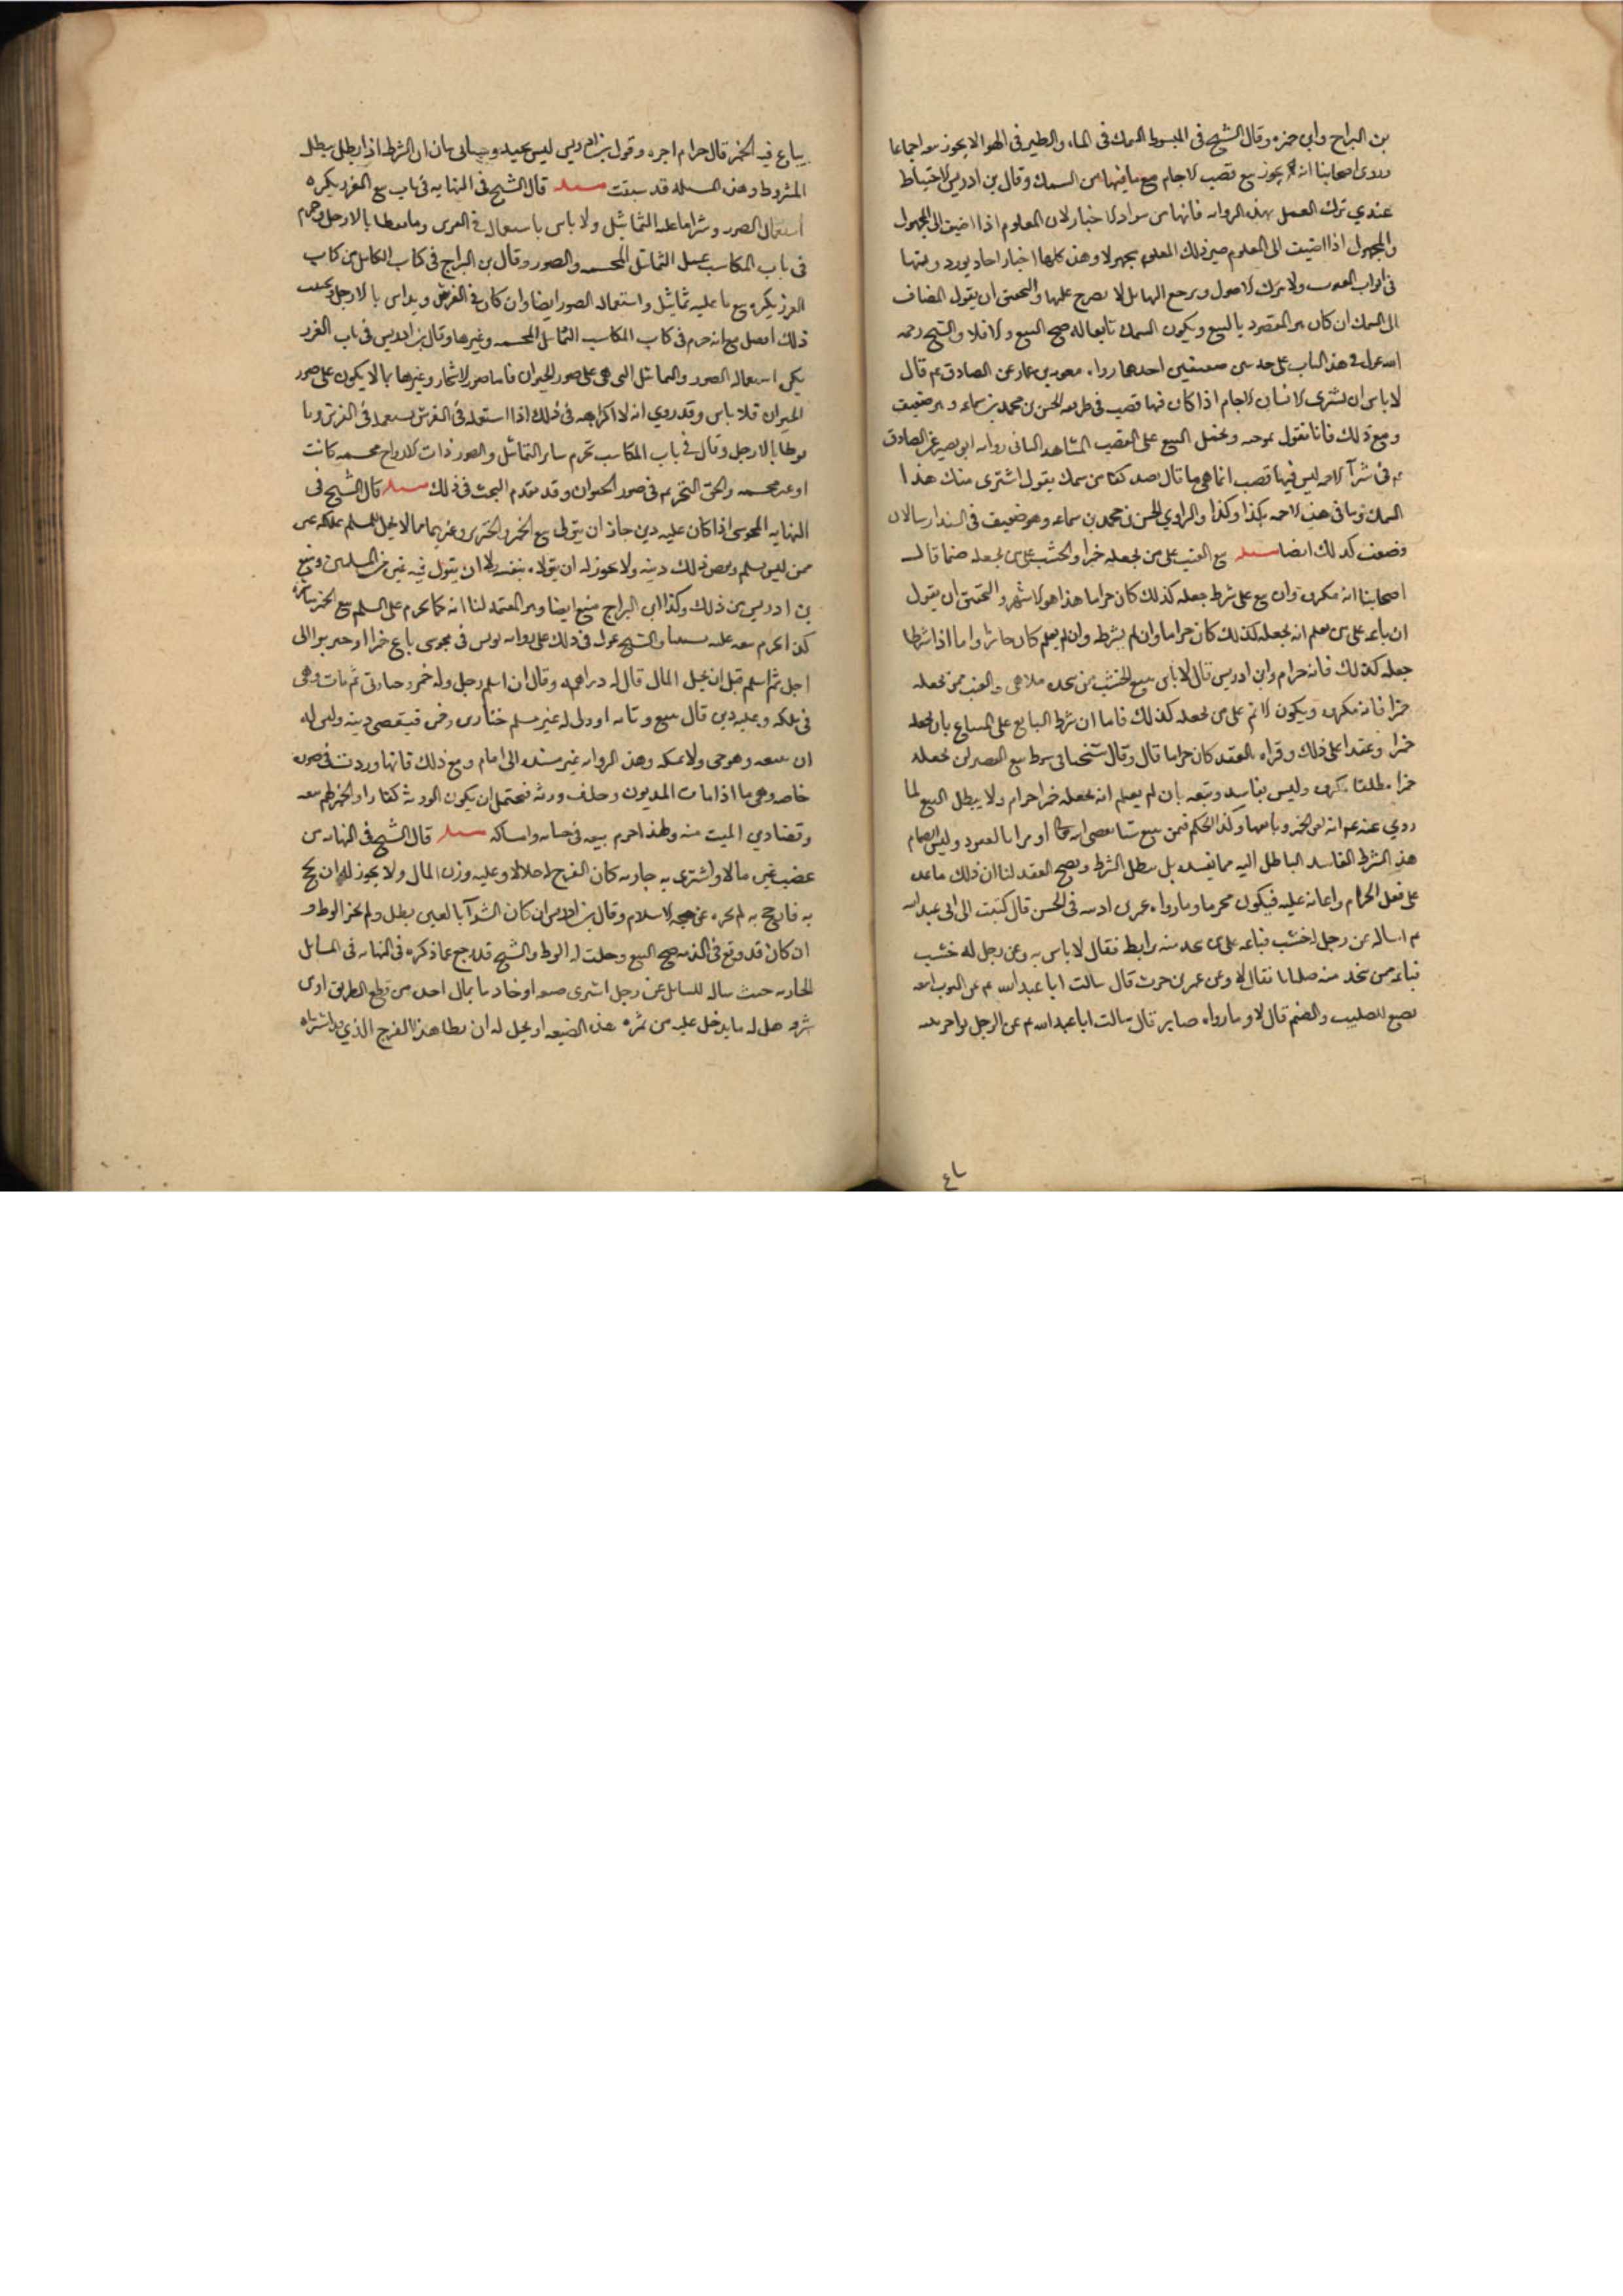 بن البراج وابي حمزه وقال الشيخ في المبسوط السمك في الماء والطير في الهوا لا يجوز بيعه اجماعا
وروى اصحابنا انه يجوز بيع قصب الاجام مع ما فيها من السمك وقال بن ادريس الاحتياط
عندي ترك العمل بهذه الروايه فانها من شواذ الاخبار لان المعلوم اذا اضيف الى المجهول
والمجهول اذا اضيف الى المعلوم صير ذلك المعلوم مجهولا وهذه كلها اخبار احاد يورد ومنها
في ابواب الفقه ولا يترك الاصول ويرجع اليها بل لا يعرج عليها والتحقيق ان يقول المضاف
الى السمك ان كان هو المقصود بالبيع ويكون السمك تابعا له صح البيع والا فلا والشيخ رحمه
الله عول في هذا الباب على حديثين ضعيفين احدهما رواه معويه بن عمار عن الصادق عم قال
لا باس ان يشترى الانسان الاجام اذا كان فيها قصب في طريقه الحسن بن محمد بن سماعه وهو ضعيف
ومع ذلك فانا نقول بموجبه ويحمل البيع على القصب المشاهد الثاني روايه ابي بصير عن الصادق
عم في شرآ الاجمه ليس فيها قصب انما هي ما قال يصيد كفا من سمك يقول اشترى منك هذا
السمك وما في هذه الاجمه بكذا وكذا والراوي الحسن بن محمد بن سماعه وهو ضعيف في السند ارسالان
وضعف كذلك ايضا مسئله بيع العنب على من يجعله خمرا والخشب على من يجعله صنما قال
اصحابنا انه مكروه وان بيع على شرط جعله كذلك كان حراما هذا هو الاشهر والتحقيق ان يقول
ان باعه على من يعلم انه يجعله كذلك كان حراما وان لم يشرطه وان لم يعلم كان جائزا واما اذا شرطا
جعله كذلك فانه حرام وابن ادريس قال لا باس ببيع الخشب ممن يتخذه ملاهي والعنب ممن يجعله
خمرا فانه مكروه ويكون الاثم على من يجعله كذلك فاما ان شرط البايع على المبتاع بان يجعله
خمرا وعقدا على ذلك وقراه بالعقد كان حراما قال وقال شيخنا في مبسوطه بيع العصير لمن يجعله
خمرا مطلقا مكروه وليس بفاسد وبيعه بان لم يعلم انه يجعله خمرا حرام ولا يبطل البيع لما
روي عنه عم انه لعن الخمر وبايعها وكذا الحكم فيمن يبيع شيا يعصي الله به
هذا الشرط الفاسد الباطل اليه مما يفسده بل يبطل الشرط ويصح العقد لنا ان ذلك ماعده
على فعل الحرام واعانه عليه فيكون محرما وما رواه عمر بن اذينه في الحسن قال كتبت الى ابي عبد الله
عم اساله عن رجل له خشب فباعه على من يتخذ منه برابط فقال لا باس به وعن رجل له خشب
فباعه ممن يتخذ منه صلبانا فقال لا وعن عمرو بن حريث قال سالت ابا عبد الله عم عن التوت ابيعه
يصنع للصليب والصنم قال لا وما رواه صابر قال سالت ابا عبد الله عم عن الرجل يواجر بيته
يباع فيه الخمر قال حرام اجره وقول بن ادريس ليس بجيد وسياتي بيان ان الشرط اذا بطل يبطل
المشروط وهذه المسئله قد سبقت مسئله قال الشيخ في النهايه في باب بيع الغرر يكره
استعمال الصور وشرا ما عليه التماثيل ولا باس باستعماله في الفرش وما يوطا بالارجل وحرم
في باب المكاسب عمل التماثيل المجسمه والصور وقال بن البراج في كتاب الكامل من كتاب
الغرر يكره بيع ما عليه تماثيل واستعماله الصور ايضا وان كان في الفرش ويداس بالارجل وتجنب
ذلك افضل مع انه حرم في كتاب المكاسب التماثيل المجسمه وغيرها وقال بن ادريس في باب الغرر
يكره استعماله الصور والتماثيل التي هي على صور الحيوان فاما صور الاشجار وغيرها مما لا يكون على صور
الحيوان فلا باس وقد روي انه لا كراهه في ذلك اذا استعمله في الفرش يستعمله في الفرش وما
يوطا بالارجل وقال في باب المكاسب تحرم ساير التماثيل والصور ذات الارواح مجسمه كانت
او غير مجسمه والحق التحريم في صور الحيوان وقد تقدم البحث في ذلك مسئله قال الشيخ في
النهايه المجوسي اذا كان عليه دين جاز ان يتولى بيع الخمر والخنزير وغيرهما مما لا يحل للمسلم تملكه غيره
ممن ليس بمسلم ويقضي ذلك دينه ولا يجوز له ان يتولاه بنفسه ولا ان يتولى فيه غيره من المسلمين ومنع
بن ادريس من ذلك وكذا ابن البراج منع ايضا وهو المعتمد لنا انه كما يحرم على المسلم بيع الخمر مباشره
كذا يحرم بيعه عليه تسببا والشيخ عول في ذلك على روايه يونس في مجوسي باع خمرا او خنزيرا الى
اجل ثم اسلم قبل ان يحل المال قال له دراهمه وقال ان اسلم رجل وله خمر وخنازير ثم مات وهي
في ملكه وعليه دين قال يبيع ديانه او ولي له غير مسلم خنازيره وخمره فيقضي دينه وليس له
ان يبيعه وهو حي ولا يمسكه وهذه الروايه غير مسنده الى امام ومع ذلك فانها وردت في صوره
خاصه وهي ما اذا مات المديون وخلف ورثه فيحتمل ان يكون الورثه كفارا والخمر لهم بيعه
وقضا دين الميت منه ولهذا حرم بيعه في حياته وامساكه مسئله قال الشيخ في النهايه من
غصب غيره مالا واشترى به جاريه كان الفرج له حلالا وعليه وزر المال ولا يجوز له ان يحج
به فان حج به لم يجزه عن حجه الاسلام وقال بن ادريس ان كان الشرآ بالعين بطل ولم يجز الوطؤ
ان كان قد وقع في الذمه صح البيع وحلت له الوطؤ والشيخ قد رجع عما ذكره في النهايه في المسايل
الحايريه حيث ساله السايل عن رجل اشترى ضيعه او خادما بمال اخذه من قطع الطريق او من
سرقه هل له ما يدخل عليه من ثمره هذه الضيعه او يحل له ان يطا هذا الفرج الذي اشتراه